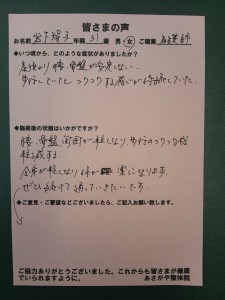 皆さまの声
お名前 宮下 子 年齢 31 歳 男・女 ご職業 師
◆いつ頃から、どのような症状がありましたか?
産後より 腰、骨盤が
歩行していても コツコツする感じが 持続していた。
◆施術後の状態はいかがですか?
腰、骨盤、 が軽くなり、歩行のコツコツ感
軽減する
全身が軽くなり 体が 楽になります。
ぜひ 続けて 通っていきたいです。
◆ご意見・ご要望などございましたら、ご記入お願い致します。
ご協力ありがとうございました。これからも皆さまが健康
でいられますように。 あさがや整体院